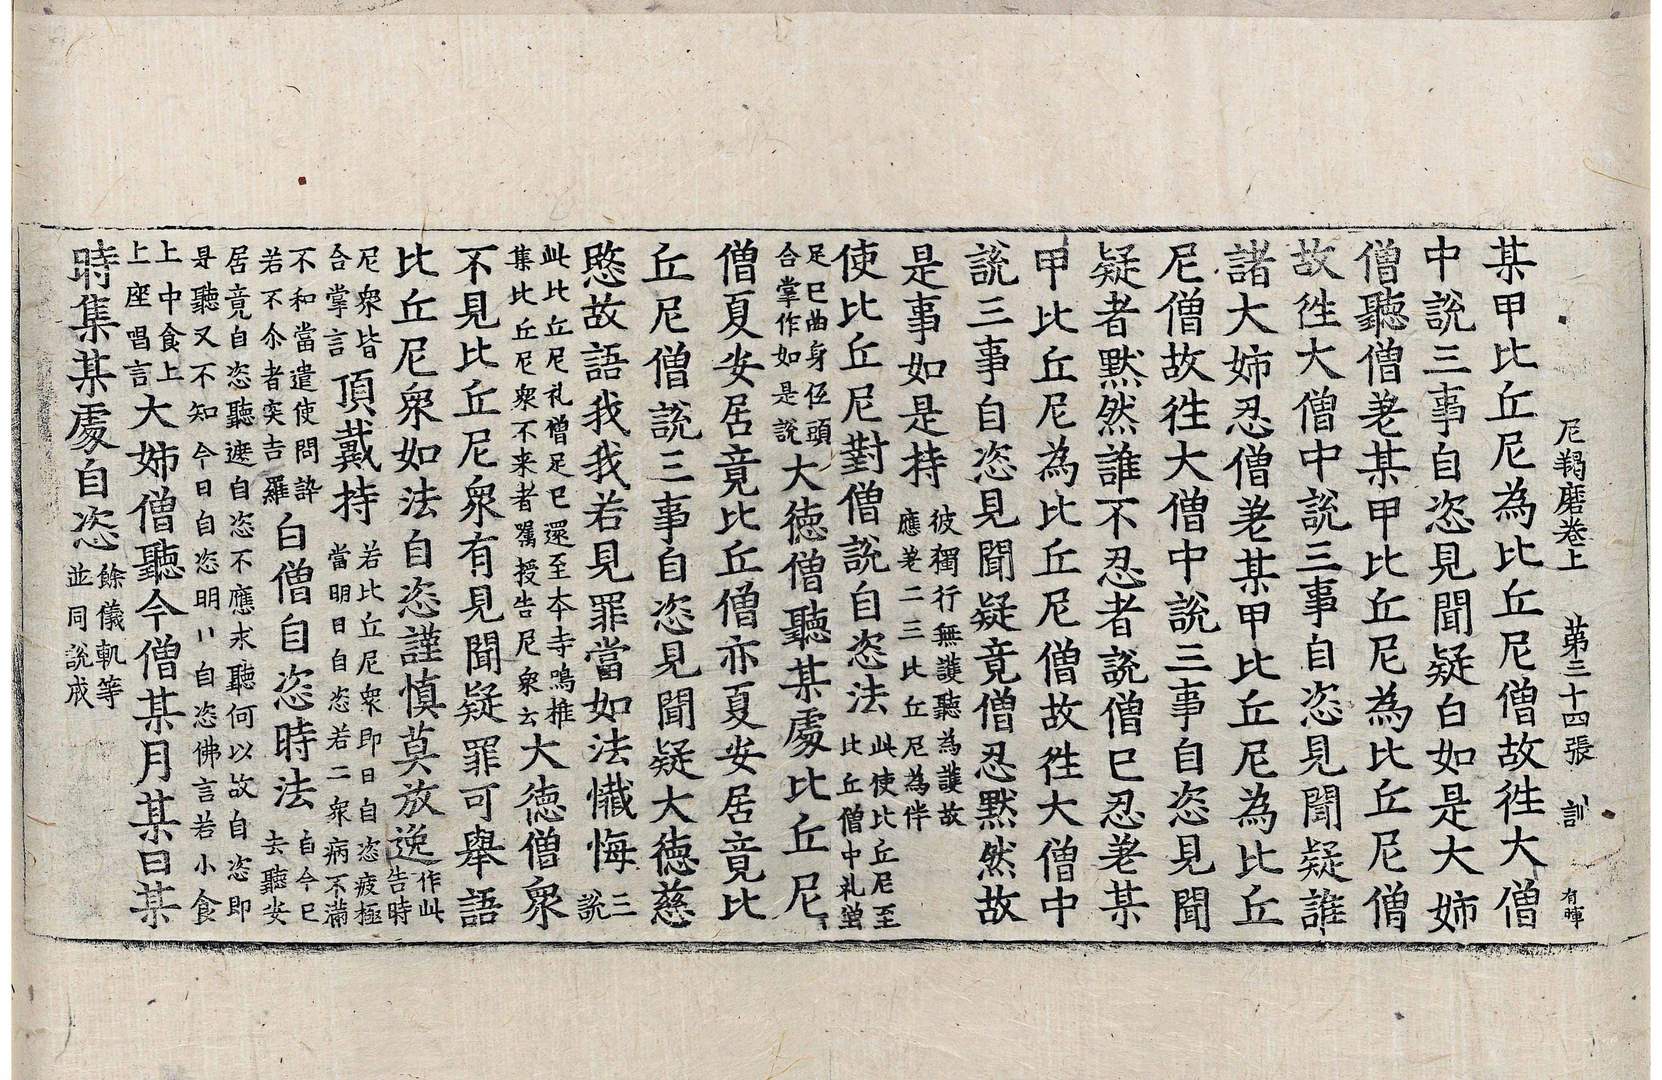 尼羯磨卷上　第三十四張　訓　有暉
某甲比丘尼為比丘尼僧故徃大僧
中說三事自恣見聞疑白如是大姉
僧聽僧差某甲比丘尼為比丘尼僧
故徃大僧中說三事自恣見聞疑誰
諸大姉忍僧差某甲比丘尼為比丘
尼僧故徃大僧中說三事自恣見聞
疑者默然誰不忍者說僧已忍差某
甲比丘尼為比丘尼僧故徃大僧中
說三事自恣見聞疑竟僧忍默然故
是事如是持彼獨行無護聽為護故應差二三比丘尼為伴
使比丘尼對僧說自恣法此使比丘尼至比丘僧中礼僧
足已曲身伍頭合掌作如是說大徳僧聽某處比丘尼
僧夏安居竟比丘僧亦夏安居竟比
丘尼僧說三事自恣見聞疑大徳慈
愍故語我我若見罪當如法懺悔三說
此比丘尼礼僧足已還至本寺鳴槌集比丘尼衆不来者囑授告尼衆云大徳僧衆
不見比丘尼衆有見聞疑罪可舉語
比丘尼衆如法自恣謹慎莫放逸作此告時
尼衆皆合掌言頂戴持若比丘尼衆即日自恣疲極當明日自恣若二衆病不滿
不和當遣使問訊若不尒者突吉羅白僧自恣時法自今已去聽安
居竟自恣聽遮自恣不應求聽何以故自恣即
是聽又不知今日自恣明〃自恣佛言若小食
上中食上上座唱言大姉僧聽今僧某月某日某
時集某處自恣餘儀軌等並同說戒